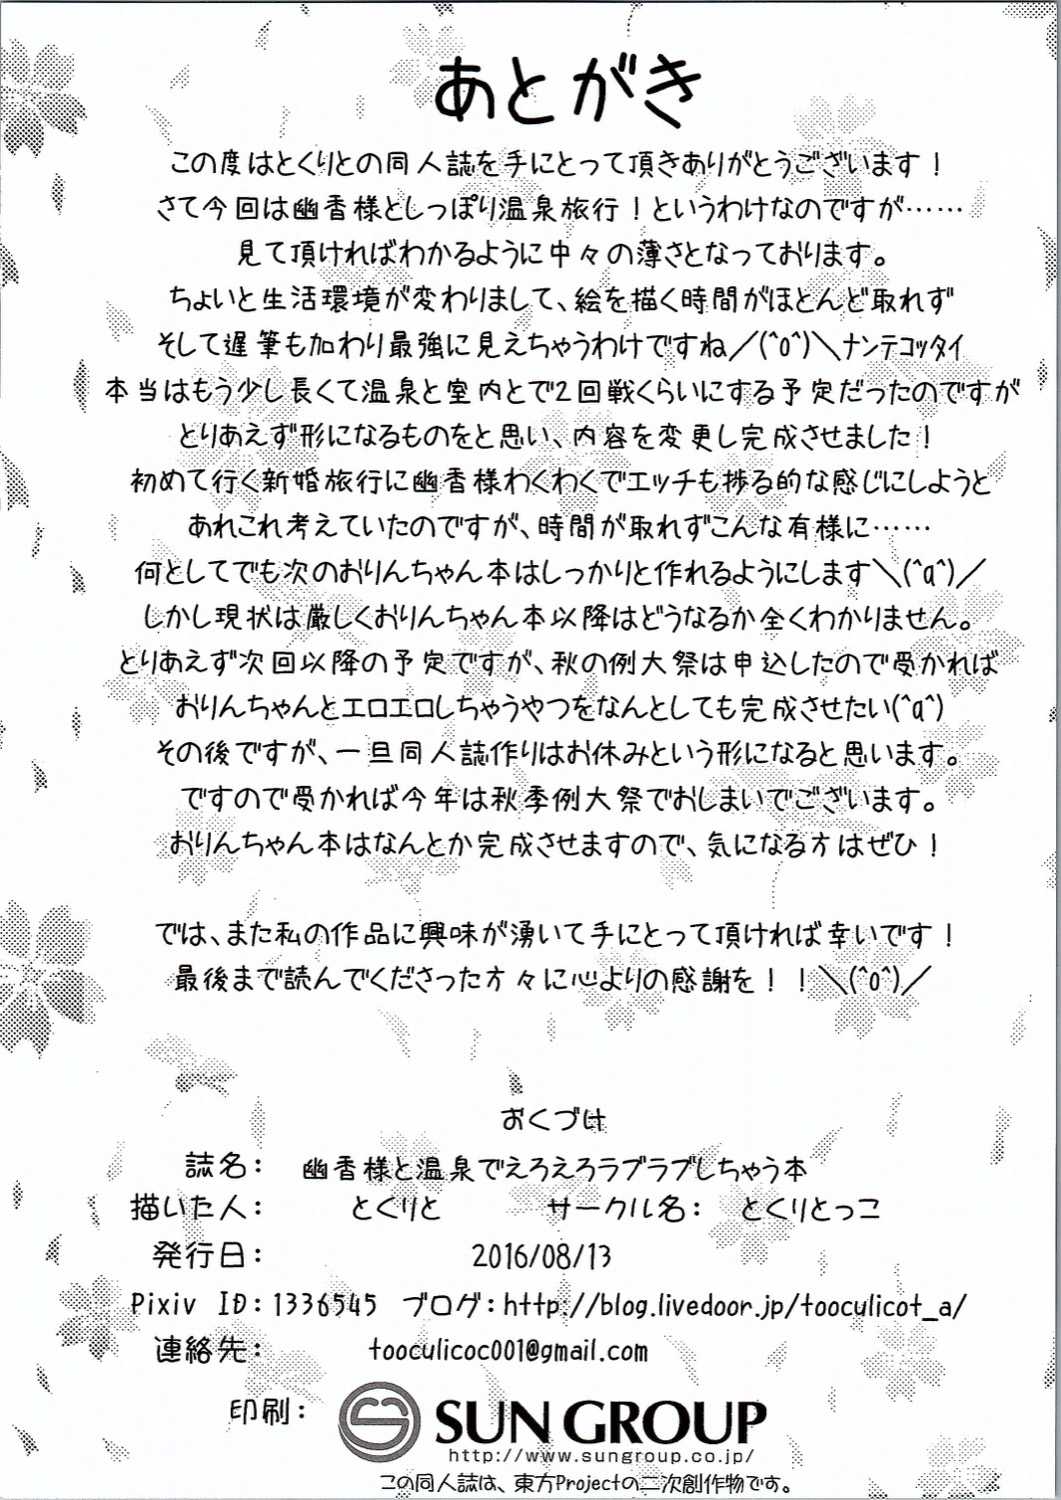 あとがき
この度はとくりとの同人誌を手にとって頂きありがとうございます！
さて今回は幽香様としっぽり温泉旅行！というわけなのですが……
見て頂ければわかるように中々の薄さとなっております。
ちょいと生活環境が変わりまして、絵を描く時間がほとんど取れず
そして遅筆も加わり最強に見えちゃうわけですね／(^o^)＼ﾅﾝﾃｺｯﾀｲ
本当はもう少し長くて温泉と室内とで2回戦くらいにする予定だったのですが
とりあえず形になるものをと思い、内容を変更し完成させました！
初めて行く新婚旅行に幽香様わくわくでエッチも捗る的な感じにしようと
あれこれ考えていたのですが、時間が取れずこんな有様に……
何としてでも次のおりんちゃん本はしっかりと作れるようにします＼(^q^)／
しかし現状は厳しくおりんちゃん本以降はどうなるか全くわかりません。
とりあえず次回以降の予定ですが、秋の例大祭は申込したので受かれば
おりんちゃんとエロエロしちゃうやつをなんとしても完成させたい(^q^)
その後ですが、一旦同人誌作りはお休みという形になると思います。
ですので受かれば今年は秋季例大祭でおしまいでございます。
おりんちゃん本はなんとか完成させますので、気になる方はぜひ！
では、また私の作品に興味が湧いて手にとって頂ければ幸いです！
最後まで読んでくださった方々に心よりの感謝を！！＼(^o^)／
おくづけ
誌名： 幽香様と温泉でえろえろラブラブしちゃう本
描いた人： とくりと サークル名： とくりとっこ
発行日： 2016/08/13
Pixiv ID：1336545 ブログ：http://blog.livedoor.jp/tooculicot_a/
連絡先： tooculicoc001@gmail.com
印刷： SUN GROUP
http://www.sungroup.co.jp/
この同人誌は、東方Projectの二次創作物です。